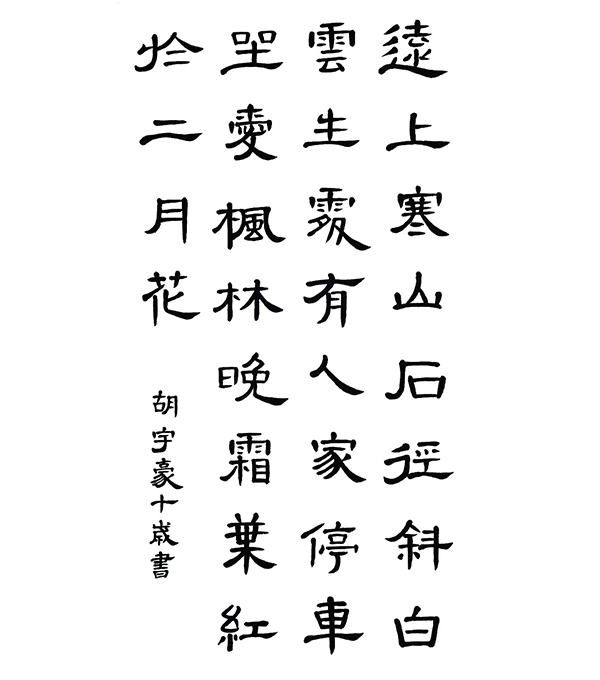 遠上寒山石徑斜白
雲生處有人家停車
坐愛楓林晚霜葉紅
於二月花
胡宇豪十歲書